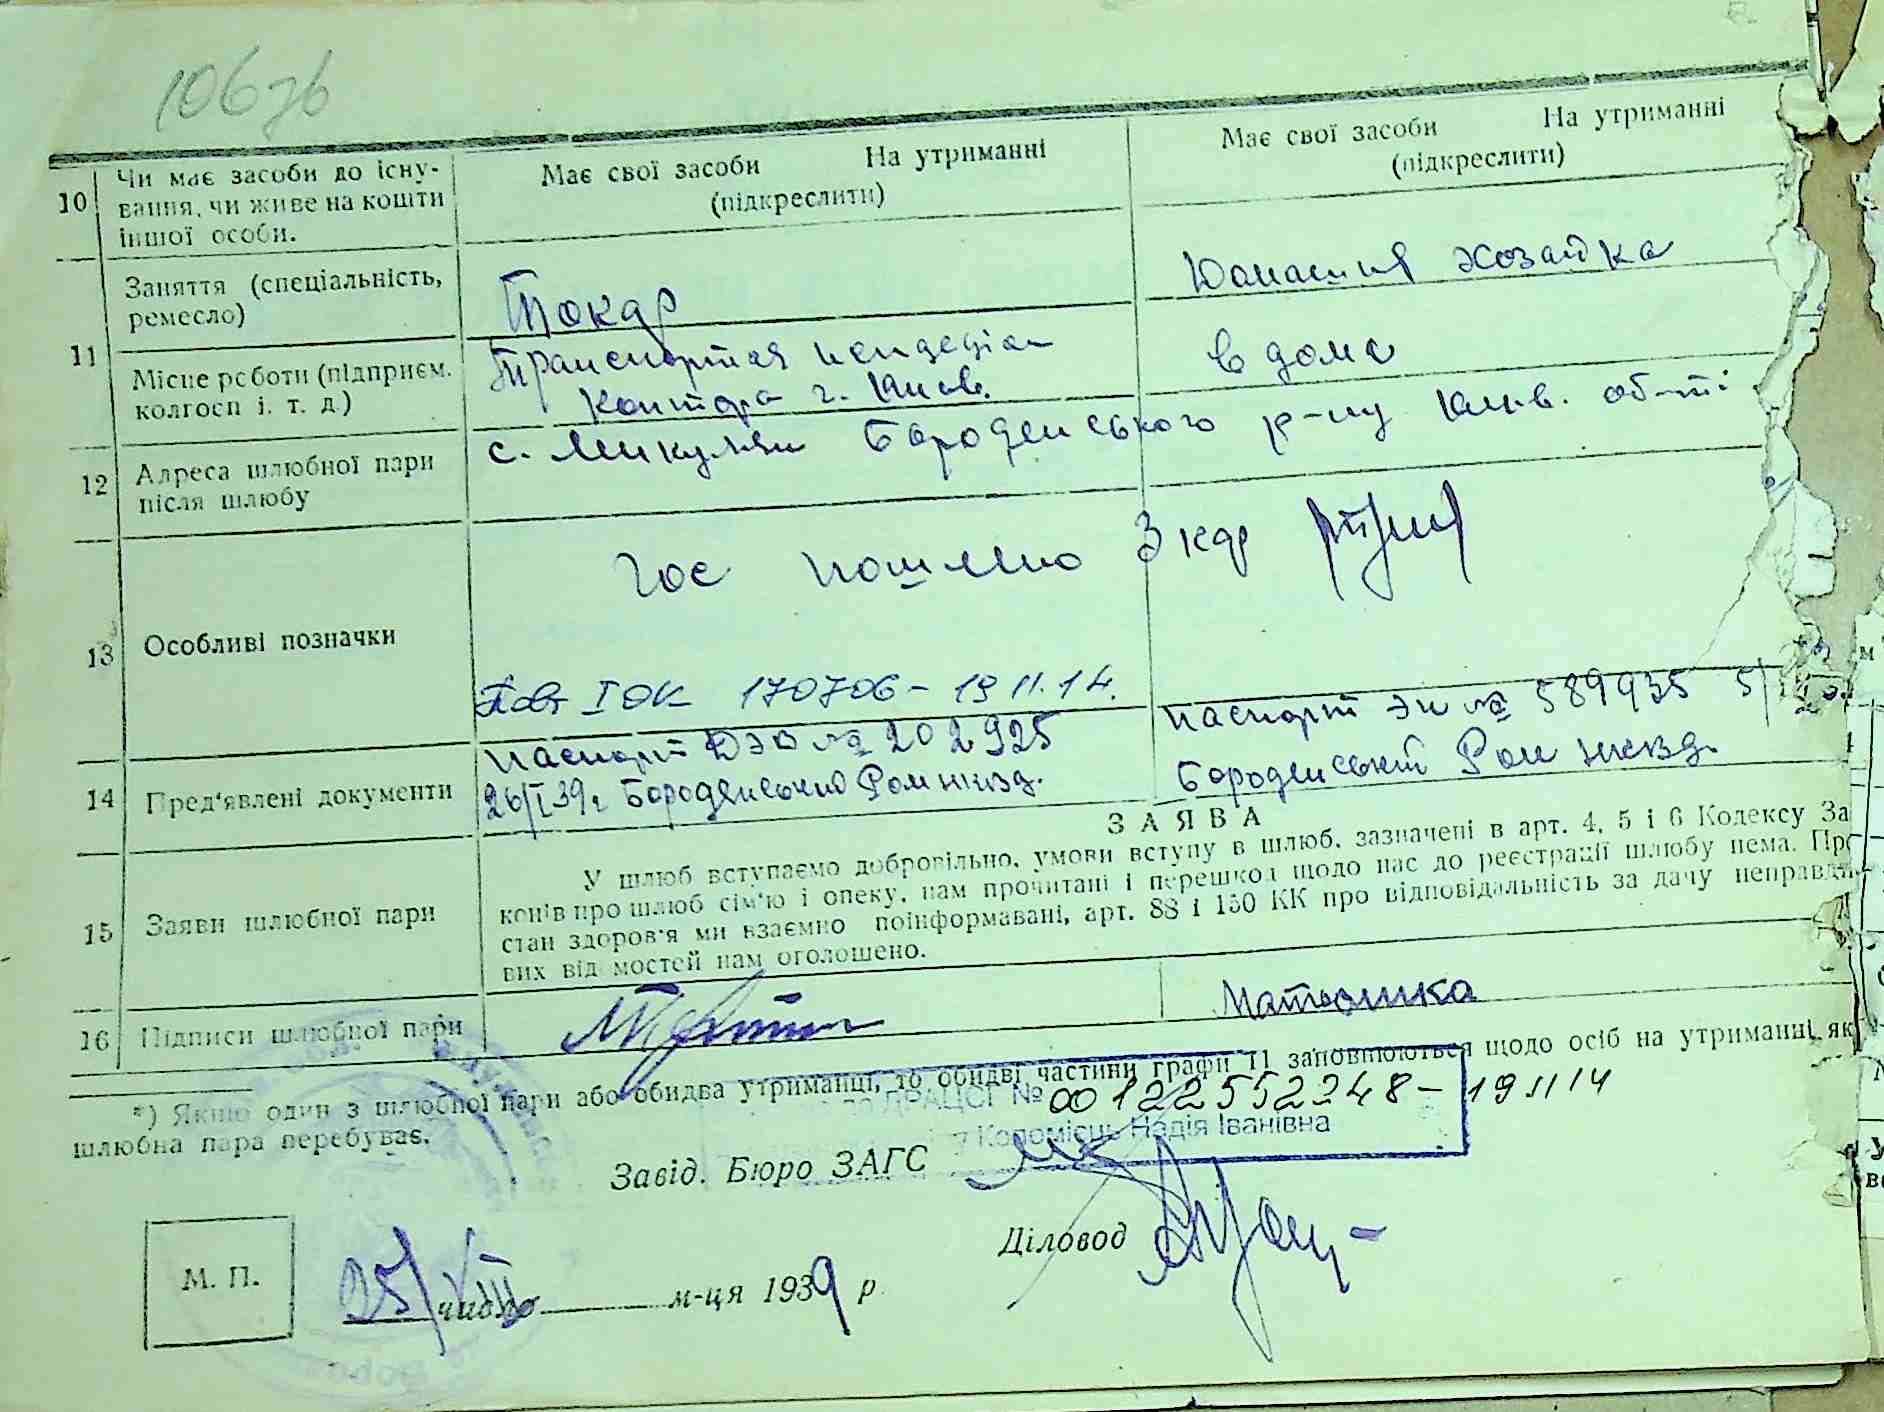 10676
10 Чи має засоби до існу-
вання, чи живе на кошти
іншої особи.
Має свої засоби На утриманні
(підкреслити)
Має свої засоби На утриманні
(підкреслити)
11 Заняття (спеціальність,
ремесло)
Токар
Домашня хозайка
Місце роботи (підприєм.
колгосп і. т. д.)
Транспортая
контора г. Києв.
в дома
12 Адреса шлюбної пари
після шлюбу
с. Микуличи Бородянського р-ну Київ. обл-ті
13 Особливі позначки
Гос пошлено 3 кар
Повт І ОК 170706 - 19.11.14.
14 Пред'явлені документи
паспорт № 202925
26/I 39 г Бородянський Ром нквд.
паспорт № 589935 5/
Бородянський Ром нквд.
15 Заяви шлюбної пари
ЗАЯВА
У шлюб вступаємо добровільно, умови вступу в шлюб, зазначені в арт. 4, 5 і 6 Кодексу За
конів про шлюб сім'ю і опеку, нам прочитані і перешкод щодо нас до реєстрації шлюбу нема. Про
стан здоров'я ми взаємно поінформавані, арт. 88 і 150 КК про відповідальність за дачу неправди-
вих від мостей нам оголошено.
16 Підписи шлюбної пари
Матюшка
*) Якщо один з шлюбної пари або обидва утриманці, то обидві частини графи 11 заповнюються щодо осіб на утриманні як
шлюбна пара перебуває.
ДРАЦСГ № 00122552248 - 19 11 14
Коломієць Надія Іванівна
Завід. Бюро ЗАГС
Діловод
М. П.
25/VIII число м-ця 1939 р